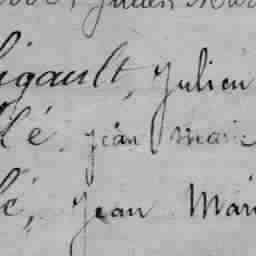 Julien Mar
igault, Julien
lé, jean marie
lé, Jean Mari